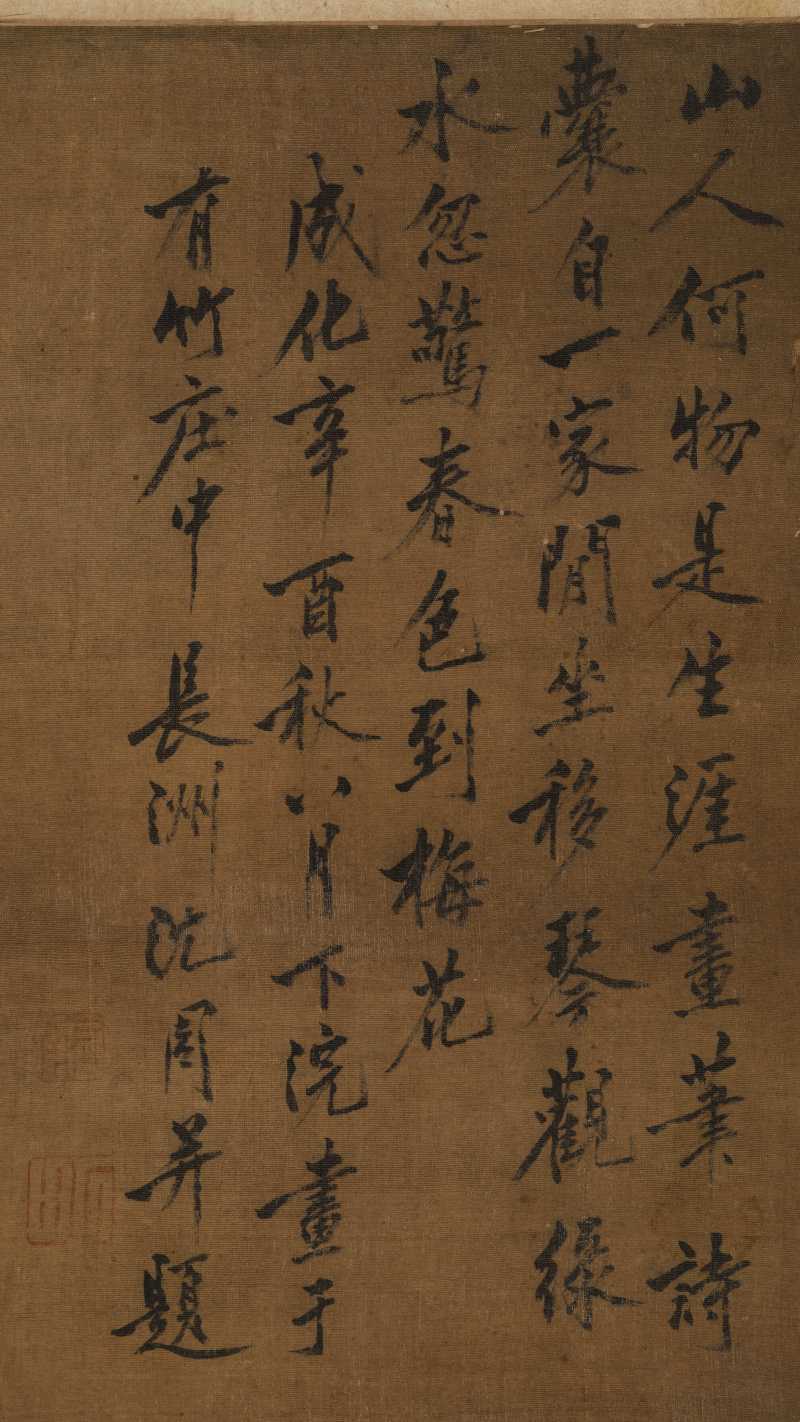 山人何物是生涯畫筆詩
囊自一家閒坐移琴觀綠
水忽驚春色到梅花
成化辛酉秋八月下浣畫于
有竹庄中長洲沈周并題